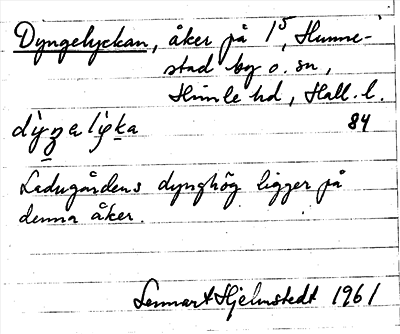 Dyngelyckan, åker på 1⁵, Hunne-
stad by o. sn,
Himle hd, Hall. l.
dỳŋalỳka 84
Ladugårdens dynghög ligger på
denna åker.
Lennart Hjelmstedt 1961